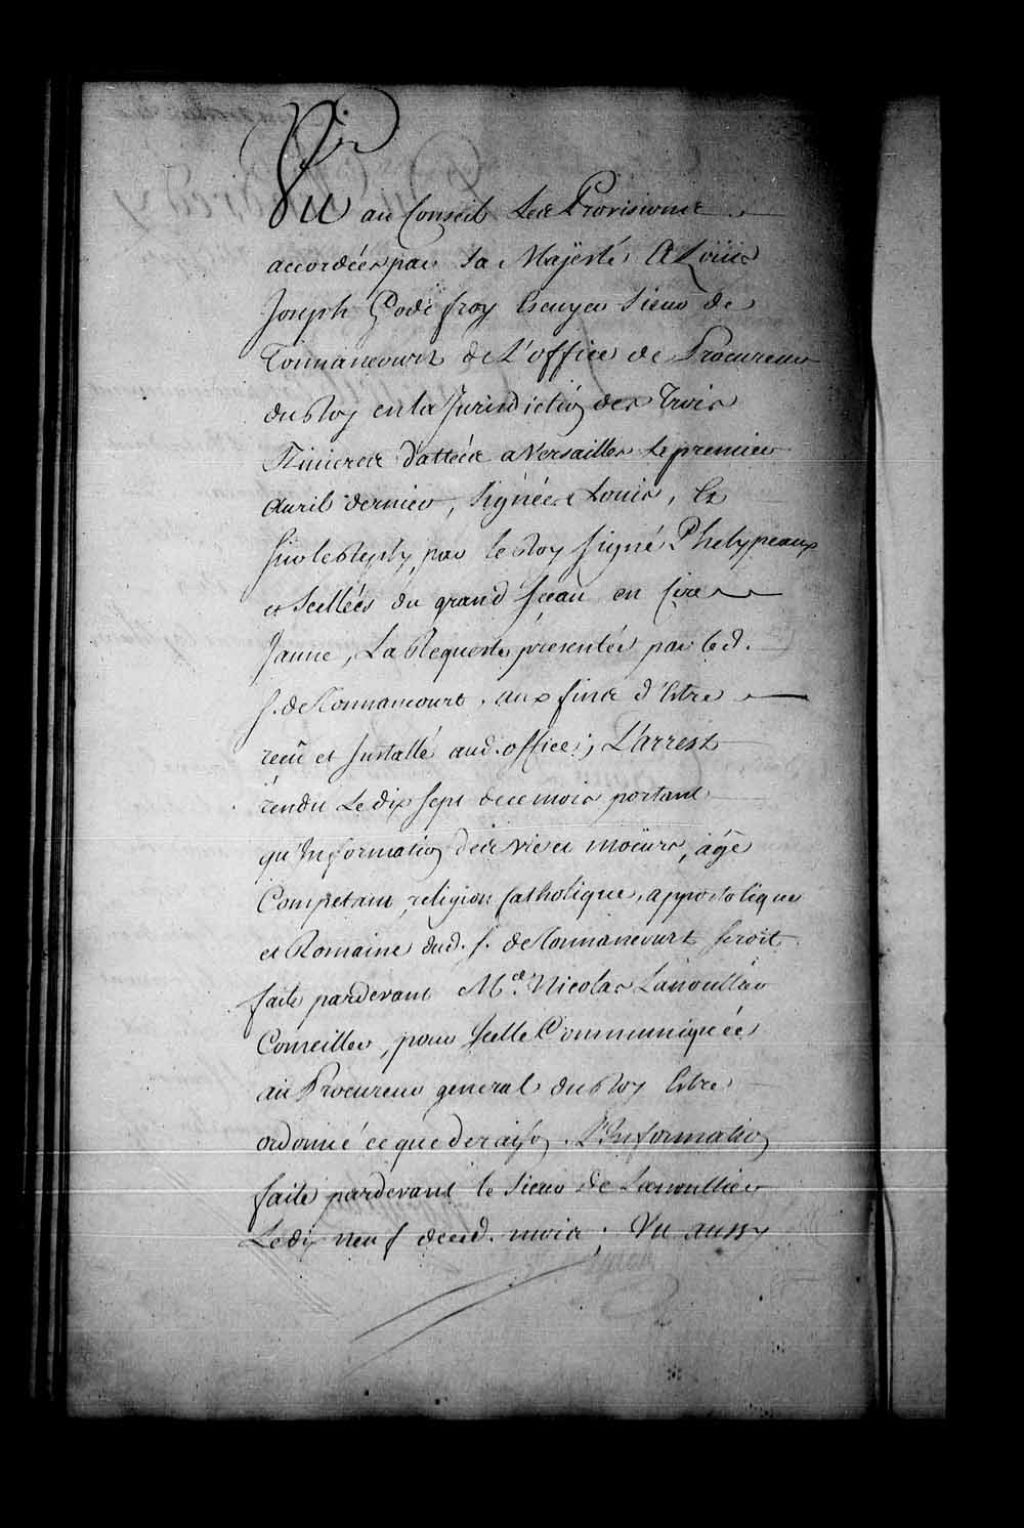 Vu au Conseil Les Provisions
accordées par Sa Majesté A Loüis
Joseph Godefroy Escuyer Sieur de
Tonnancourt de L'office de Procureur
du Roy en la Jurisdiction des Trois
Rivieres dattées a Versailles le premier
avril dernier, Signées Louis, Et
sur le Reply, par le Roy signé Phelypeaux
et Scellées du grand sceau en Cire
Jaune, La Requeste presentée par led.
S. de Tonnancourt, aux fins d'Estre
reçu et Installé aud. office; L'arrest
rendu Le dix sept de ce mois portant
qu'Information des vie et moeurs, âge
Competant, religion Catholique, appostolique
et Romaine dud. S. de Tonnancourt seroit
faite pardevant Me. Nicolas Lanoullier
Conseiller, pour Icelle Communiquée
au Procureur general du Roy Estre
ordonné ce que de raison, L'Information
faite pardevant le Sieur de Lanoullier
Le dix neuf de ced. mois; Vu aussy